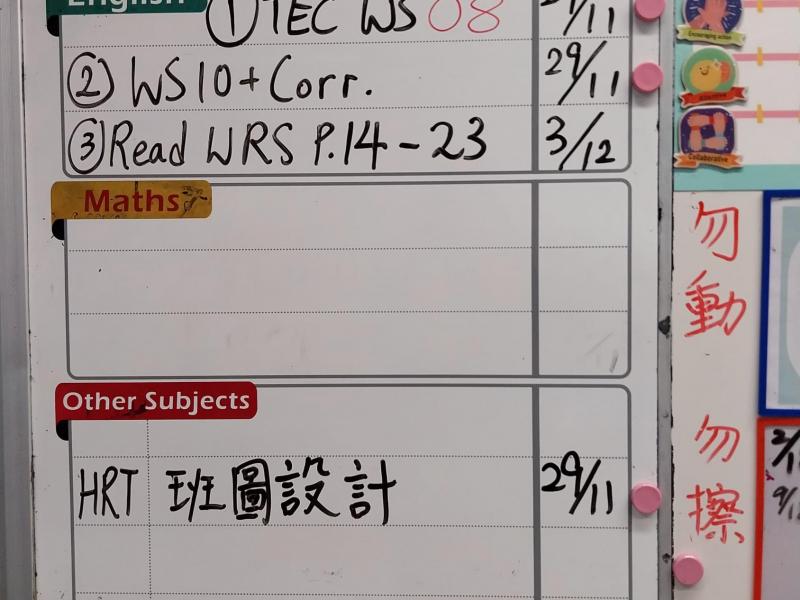 English
① TEC WS 08
② WS10+Corr. 29/11
③ Read WRS P.14-23 3/12
Maths
Other Subjects
HRT 班圖設計 29/11
Encouraging action
Collaborative
勿動
勿擦